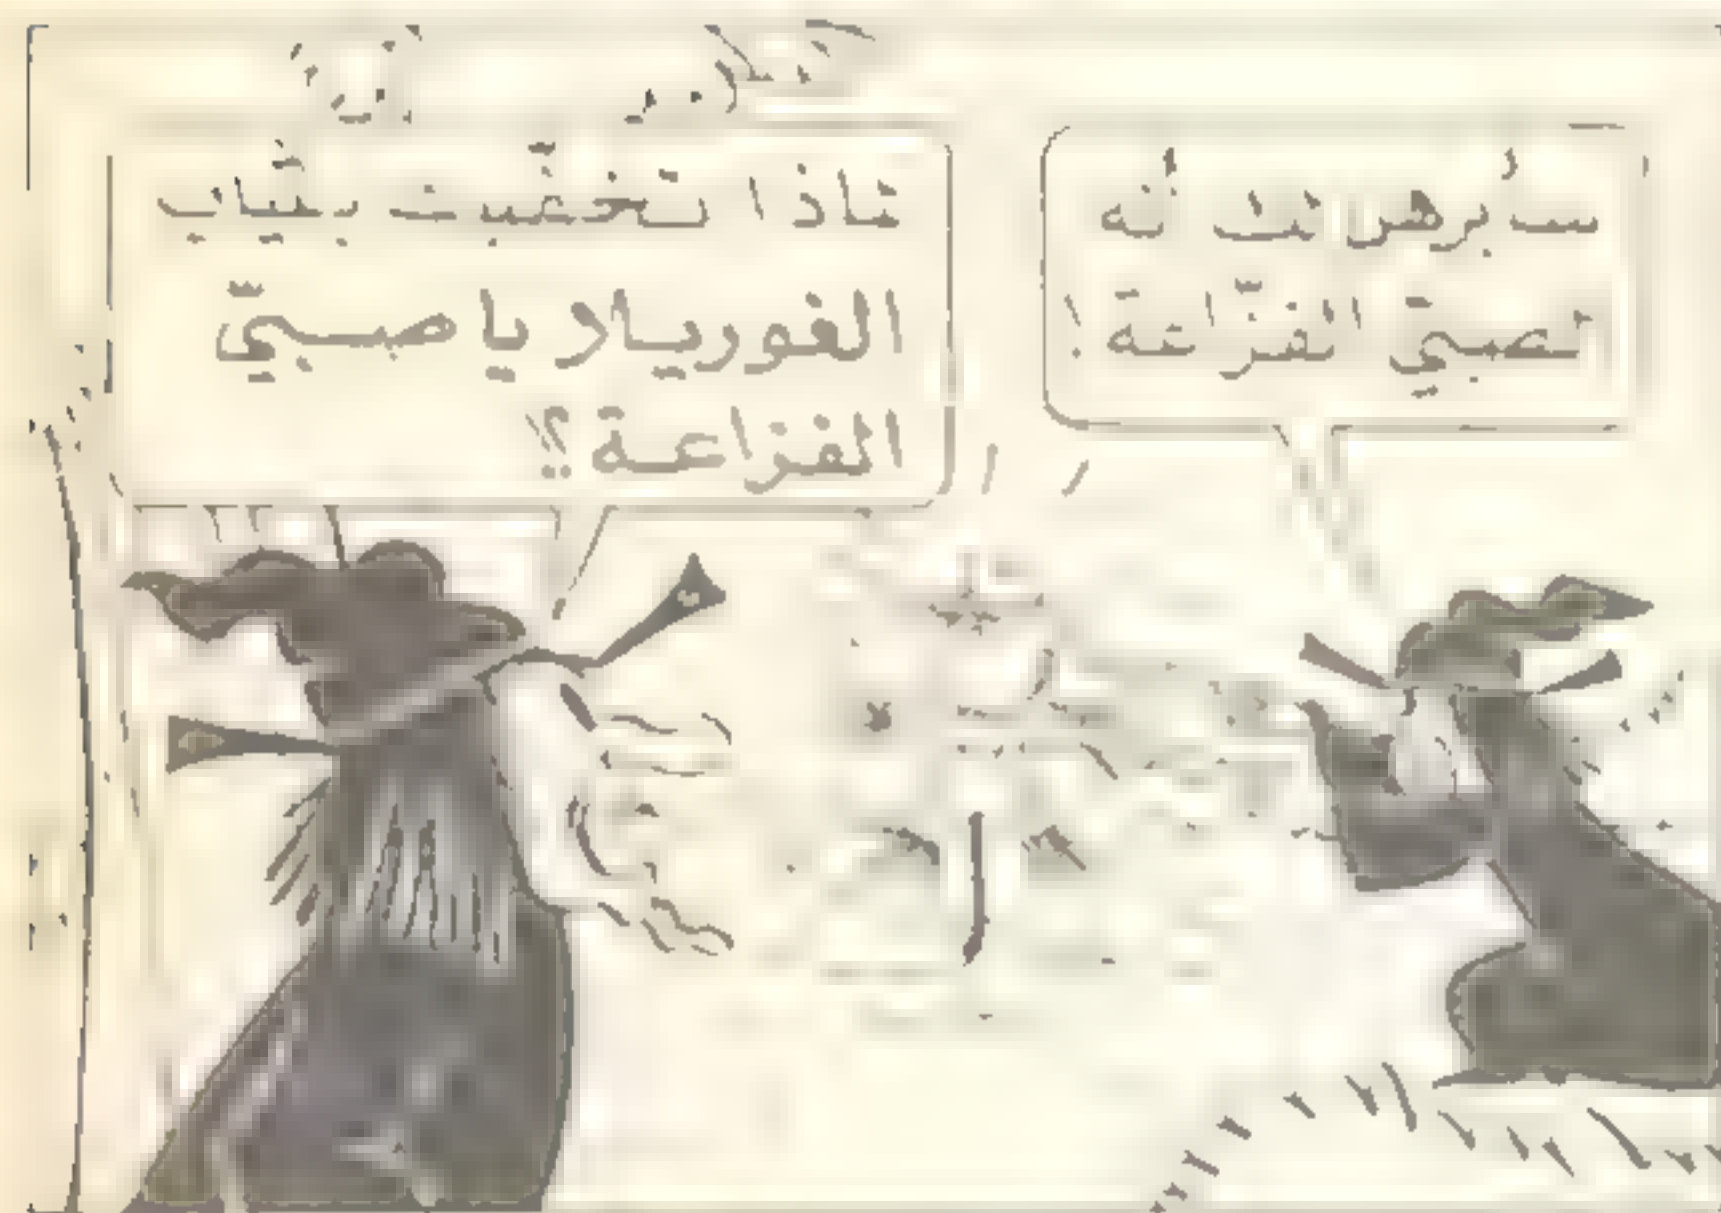 سأبرهن لك أنه
الصبيّ الفزّاعة!
لماذا تخفّيت بثياب
الغوريلا يا صبيّ
الفزاعة؟!